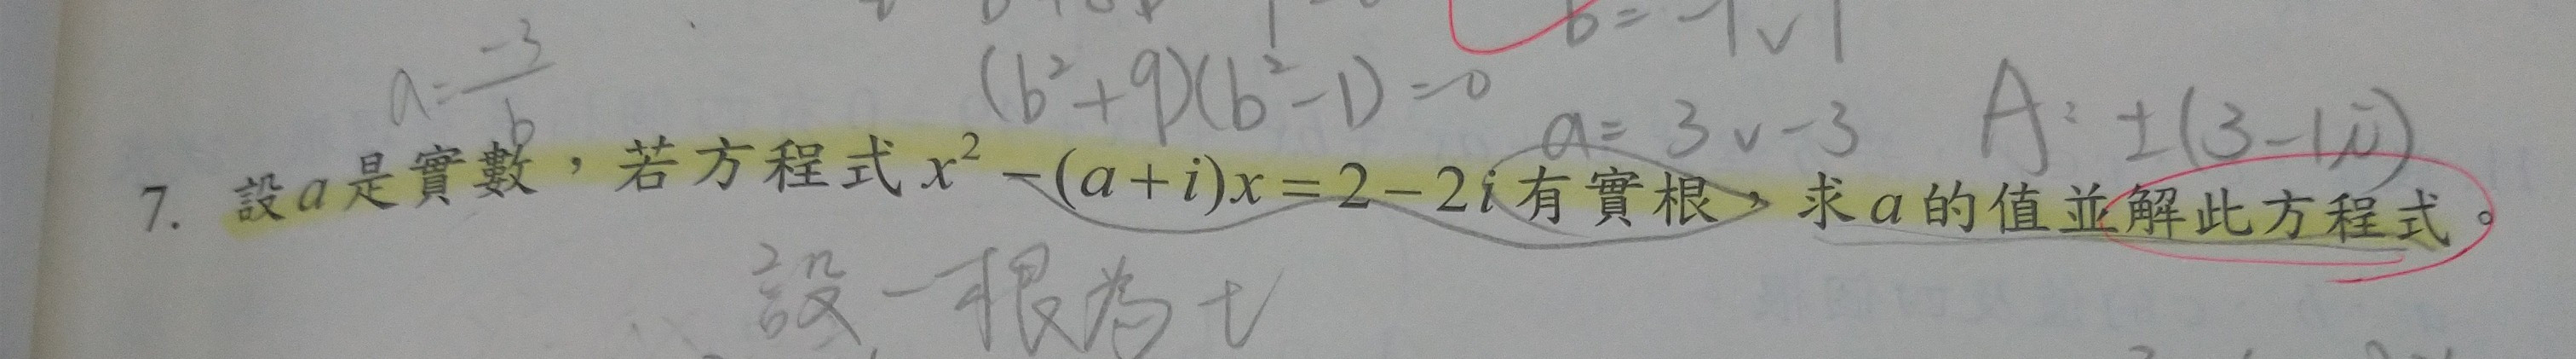 b = -1 ∨ 1
a = -3/b
(b² + 9)(b² - 1) = 0
a = 3 ∨ -3
A: ±(3 - 1i)
7. 設a是實數,若方程式 x² - (a + i)x = 2 - 2i 有實根,求a的值並解此方程式。
設一根為t